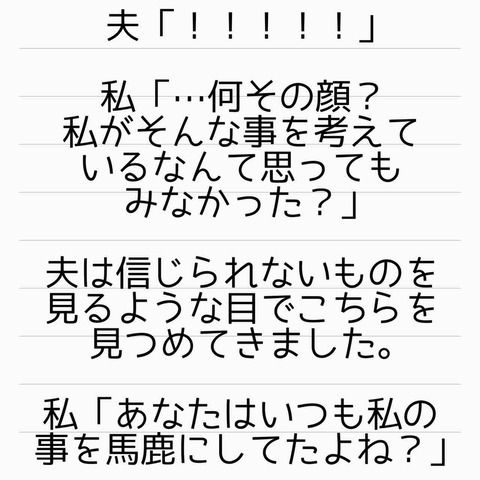 夫「！！！！！」
私「…何その顔？
私がそんな事を考えて
いるなんて思っても
みなかった？」
夫は信じられないものを
見るような目でこちらを
見つめてきました。
私「あなたはいつも私の
事を馬鹿にしてたよね？」